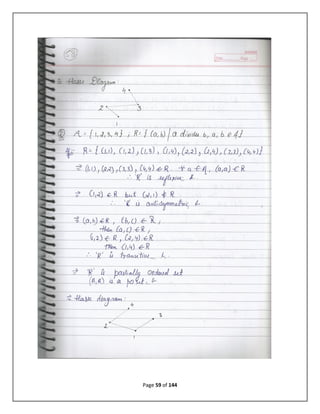 ∴ Hasse Diagram
4
2
3
1
A = {1, 2, 3, 4} ; R = { (a, b) | a divides b, a, b ∈ A}
R = { (1,1), (1,2), (1,3), (1,4), (2,2), (2,4), (3,3), (4,4)}
⇒ (1,1), (2,2), (3,3), (4,4) ∈ R ∀ a ∈ A, (a,a) ∈ R
∴ 'R' is reflexive
⇒ (1,2) ∈ R but (2,1) ∉ R
∴ 'R' is antisymmetric
⇒ (a,b) ∈ R, (b,c) ∈ R,
then (a,c) ∈ R,
(1,2) ∈ R, (2,4) ∈ R
then (1,4) ∈ R
∴ 'R' is transitive
⇒ 'R' is partially ordered set
is a poset.
∴ Hasse diagram:
4
3
2
1
Page 59 of 144